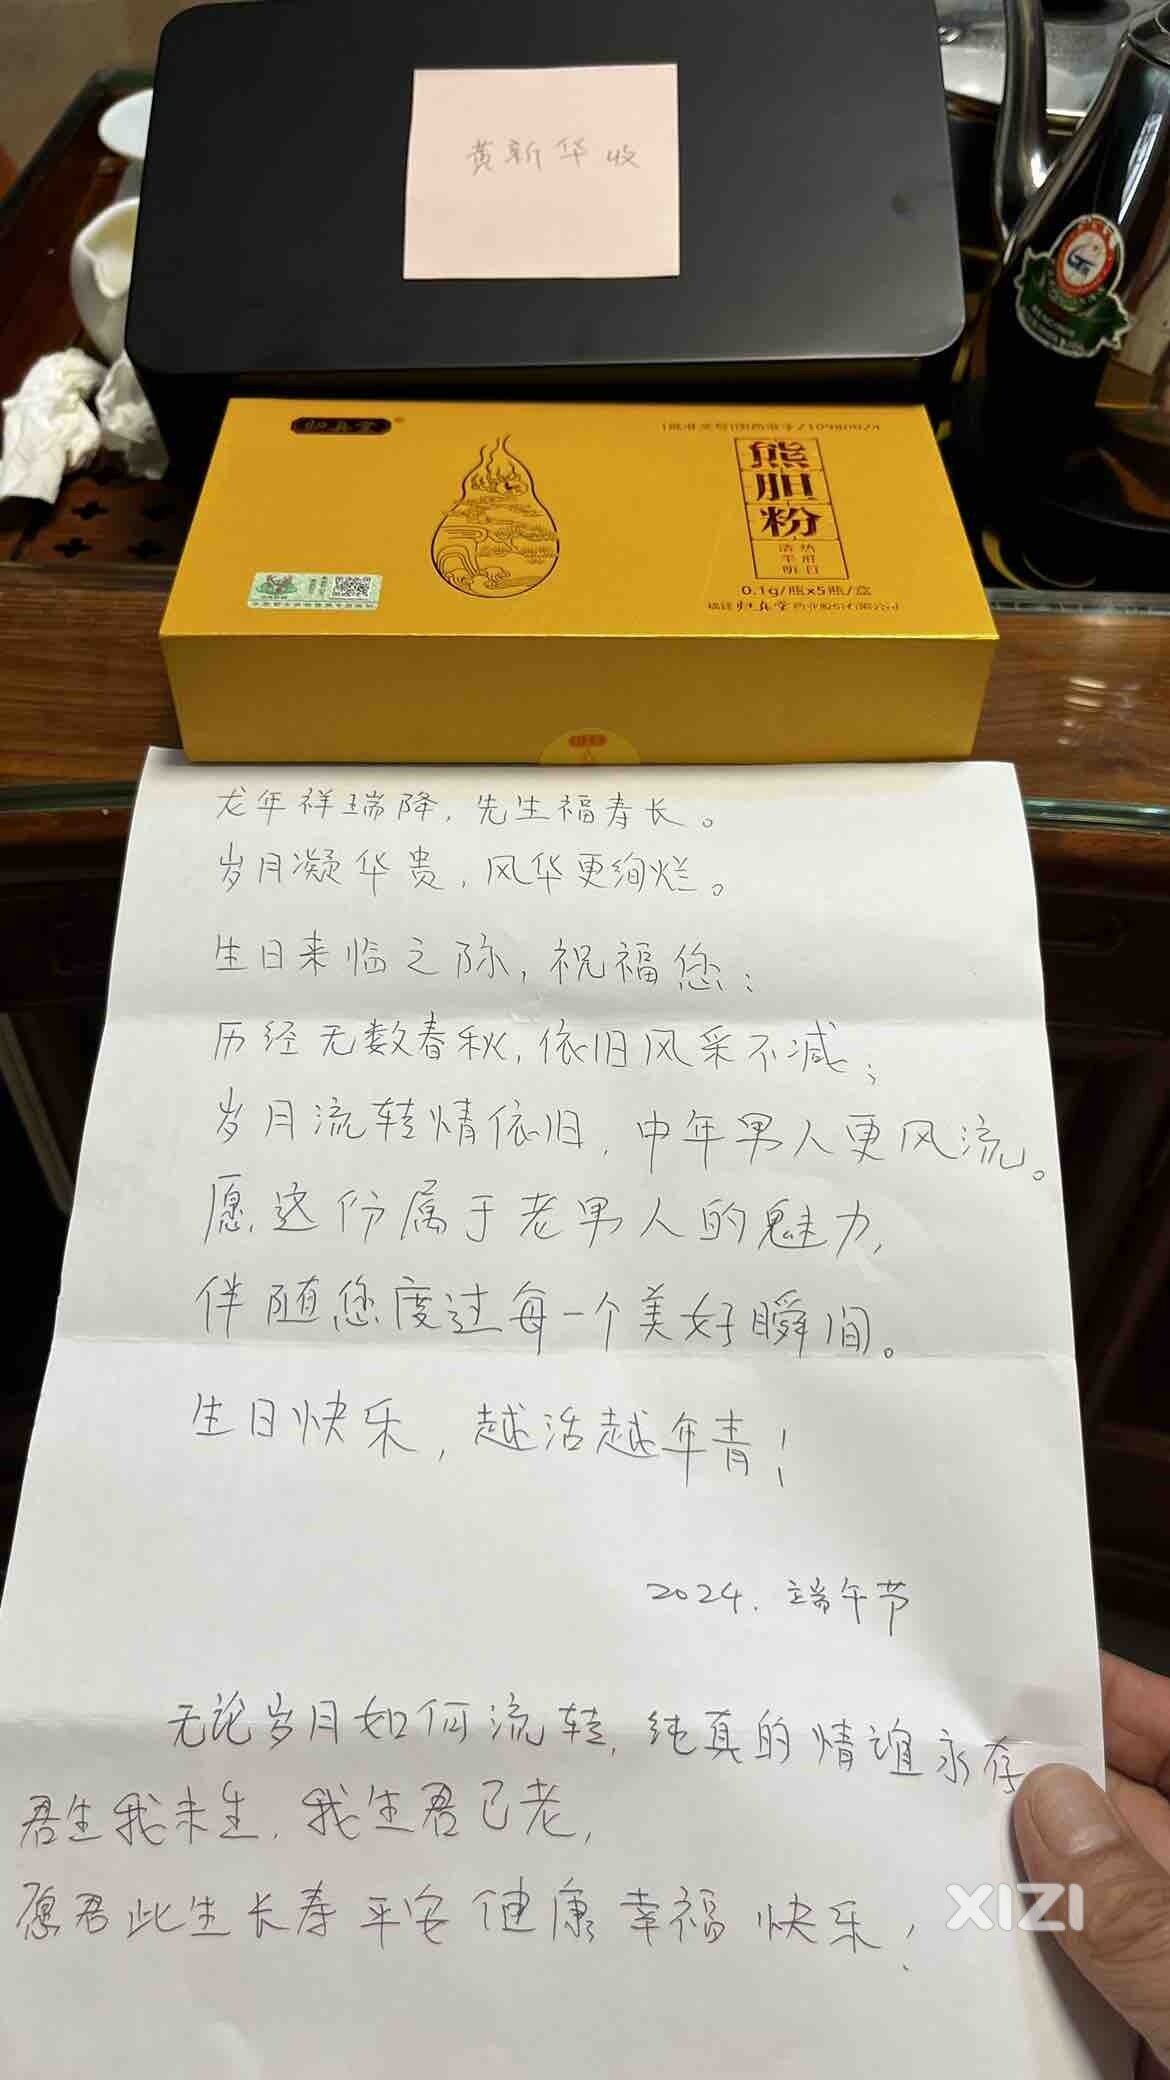 黄新华收
归真堂®
(批准文号)国药准字Z10980024
熊
胆
粉
清热
平肝
明目
0.1g/瓶x5瓶/盒
福建归真堂药业股份有限公司
龙年祥瑞降，先生福寿长。
岁月凝华贵，风华更绚烂。
生日来临之际，祝福您：
历经无数春秋，依旧风采不减；
岁月流转情依旧，中年男人更风流。
愿这份属于老男人的魅力，
伴随您度过每一个美好瞬间。
生日快乐，越活越年青！
2024.端午节
无论岁月如何流转，纯真的情谊永存
君生我未生，我生君已老，
愿君此生长寿平安健康幸福快乐！
XIZI